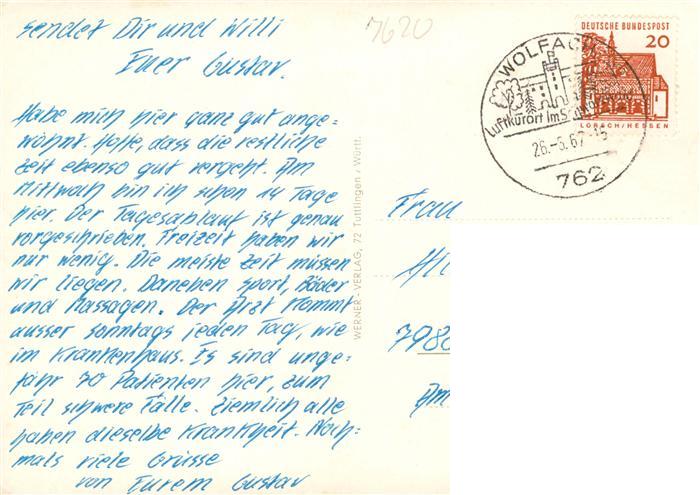 sendet Dir und Willi
Euer Gustav.
Habe mich hier ganz gut ange=
wöhnt. Hoffe, dass die restliche
Zeit ebenso gut vergeht. Am
Mittwoch bin ich schon 14 Tage
hier. Der Tagesablauf ist genau
vorgeschrieben. Freizeit haben wir
nur wenig. Die meiste Zeit müssen
wir liegen. Daneben Sport, Bäder
und Massagen. Der Arzt kommt
ausser sonntags jeden Tag, wie
im Krankenhaus. Es sind unge=
fähr 70 Patienten hier, zum
Teil schwere Fälle. Ziemlich alle
haben dieselbe Krankheit. Noch=
mals viele Grüsse
von Eurem Gustav
7620
WERNER-VERLAG, 72 Tuttlingen / Württ.
DEUTSCHE BUNDESPOST
20
LORSCH/HESSEN
WOLFACH
Luftkurort im
26.-5.67
762
Frau
7980
Am